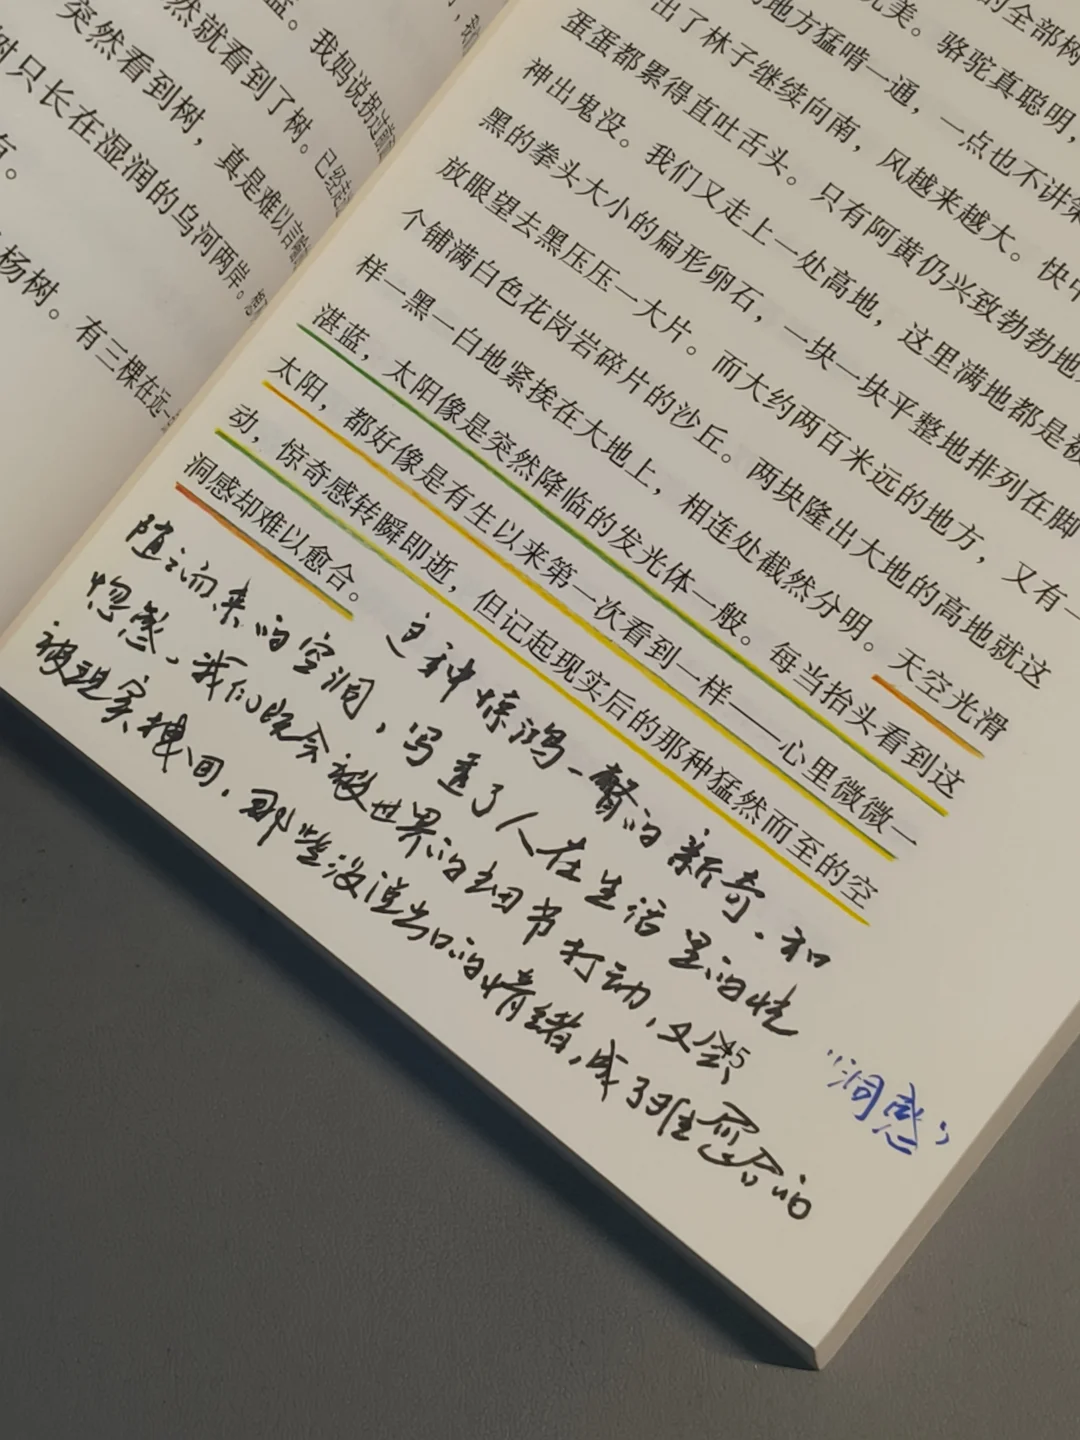 蓝。我妈说拐过
然就看到了树。已经
突然看到树，真是难以言喻
树只长在湿润的乌河两岸。
有。
杨树。有三棵在远
的全部树
完美。骆驼真聪明，
的地方猛啃一通，一点也不讲
出了林子继续向南，风越来越大。快中
蛋蛋都累得直吐舌头。只有阿黄仍兴致勃勃地
神出鬼没。我们又走上一处高地，这里满地都是被
黑的拳头大小的扁形卵石，一块一块平整地排列在脚
放眼望去黑压压一大片。而大约两百米远的地方，又有一
个铺满白色花岗岩碎片的沙丘。两块隆出大地的高地就这
样一黑一白地紧挨在大地上，相连处截然分明。天空光滑
湛蓝，太阳像是突然降临的发光体一般。每当抬头看到这
太阳，都好像是有生以来第一次看到一样——心里微微一
动，惊奇感转瞬即逝，但记起现实后的那种猛然而至的空
洞感却难以愈合。
这种惊鸿一瞥的新奇，和
随之而来的空洞，写透了人在生活里的恍
惚感，我们既会被世界的细节打动，又会
被现实拽回，那些没说出口的情绪，成了难愈合的
15
"洞感"